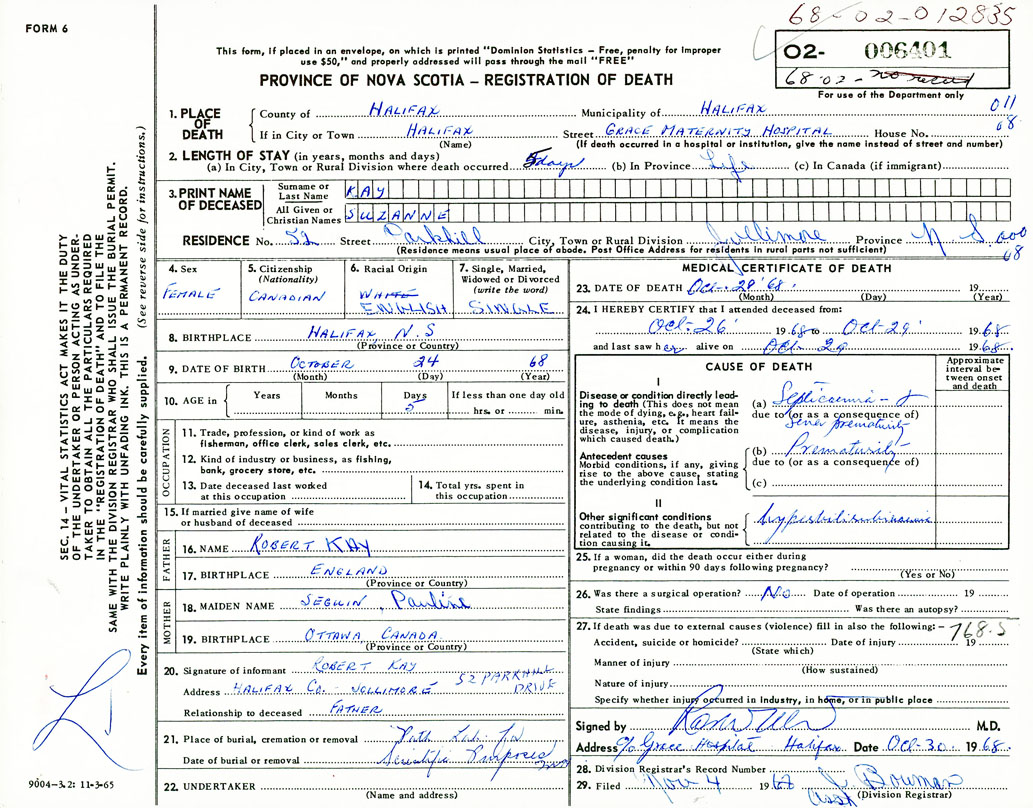 68-02-012835
FORM 6
This form, if placed in an envelope, on which is printed "Dominion Statistics – Free, penalty for improper
use $50," and properly addressed will pass through the mail "FREE"
02- 006401
68-02-
PROVINCE OF NOVA SCOTIA – REGISTRATION OF DEATH
For use of the Department only
SEC. 14 – VITAL STATISTICS ACT MAKES IT THE DUTY
OF THE UNDERTAKER OR PERSON ACTING AS UNDER-
TAKER TO OBTAIN ALL THE PARTICULARS REQUIRED
IN THE "REGISTRATION OF DEATH" AND TO FILE THE
SAME WITH THE DIVISION REGISTRAR WHO SHALL ISSUE THE BURIAL PERMIT.
WRITE PLAINLY WITH UNFADING INK. THIS IS A PERMANENT RECORD.
Every item of information should be carefully supplied. (See reverse side for instructions.)
1. PLACE OF DEATH
County of HALIFAX Municipality of HALIFAX 011
If in City or Town HALIFAX Street GRACE MATERNITY HOSPITAL House No. 68
(Name) (If death occurred in a hospital or institution, give the name instead of street and number)
2. LENGTH OF STAY (in years, months and days)
(a) In City, Town or Rural Division where death occurred 5 days (b) In Province Life (c) In Canada (if immigrant)
3. PRINT NAME OF DECEASED
Surname or Last Name KAY
All Given or Christian Names SUZANNE
RESIDENCE No. 52 Street Parkhill City, Town or Rural Division Jollimore Province N S 000
(Residence means usual place of abode. Post Office Address for residents in rural parts not sufficient) 68
4. Sex FEMALE
5. Citizenship (Nationality) CANADIAN
6. Racial Origin WHITE ENGLISH
7. Single, Married, Widowed or Divorced (write the word) SINGLE
8. BIRTHPLACE HALIFAX N.S
(Province or Country)
9. DATE OF BIRTH OCTOBER 24 68
(Month) (Day) (Year)
10. AGE in Years Months Days 5 If less than one day old hrs. or min.
OCCUPATION
11. Trade, profession, or kind of work as
fisherman, office clerk, sales clerk, etc.
12. Kind of industry or business, as fishing,
bank, grocery store, etc.
13. Date deceased last worked at this occupation
14. Total yrs. spent in this occupation
15. If married give name of wife
or husband of deceased
FATHER
16. NAME ROBERT KAY
17. BIRTHPLACE ENGLAND
(Province or Country)
MOTHER
18. MAIDEN NAME SEGUIN, Pauline
19. BIRTHPLACE OTTAWA CANADA
(Province or Country)
20. Signature of informant ROBERT KAY
Address HALIFAX Co. JOLLIMORE 52 PARKHILL DRIVE
Relationship to deceased FATHER
21. Place of burial, cremation or removal Path Lab for
Date of burial or removal Scientific Purposes
22. UNDERTAKER
(Name and address)
9004-3.2: 11-3-65
MEDICAL CERTIFICATE OF DEATH
23. DATE OF DEATH Oct. 29 '68 19
(Month) (Day) (Year)
24. I HEREBY CERTIFY that I attended deceased from:
Oct-26 1968 to Oct-29 1968
and last saw her alive on Oct 29 1968
CAUSE OF DEATH
Approximate interval between onset and death
I
Disease or condition directly lead-
ing to death (This does not mean
the mode of dying, e.g., heart fail-
ure, asthenia, etc. It means the
disease, injury, or complication
which caused death.)
(a) Septicaemia
due to (or as a consequence of)
prematurity
Antecedent causes
Morbid conditions, if any, giving
rise to the above cause, stating
the underlying condition last.
(b) Prematurity
due to (or as a consequence of)
(c)
II
Other significant conditions
contributing to the death, but not
related to the disease or condi-
tion causing it.
hyperbilirubinaemia
25. If a woman, did the death occur either during
pregnancy or within 90 days following pregnancy?
(Yes or No)
26. Was there a surgical operation? No Date of operation 19
State findings Was there an autopsy?
27. If death was due to external causes (violence) fill in also the following:– 768.5
Accident, suicide or homicide? Date of injury 19
(State which)
Manner of injury
(How sustained)
Nature of injury
Specify whether injury occurred in industry, in home, or in public place
Signed by M.D.
Address c/o Grace Hospital Halifax Date Oct-30 1968
28. Division Registrar's Record Number
29. Filed Nov 4 1968 J. Bowman
(Division Registrar)